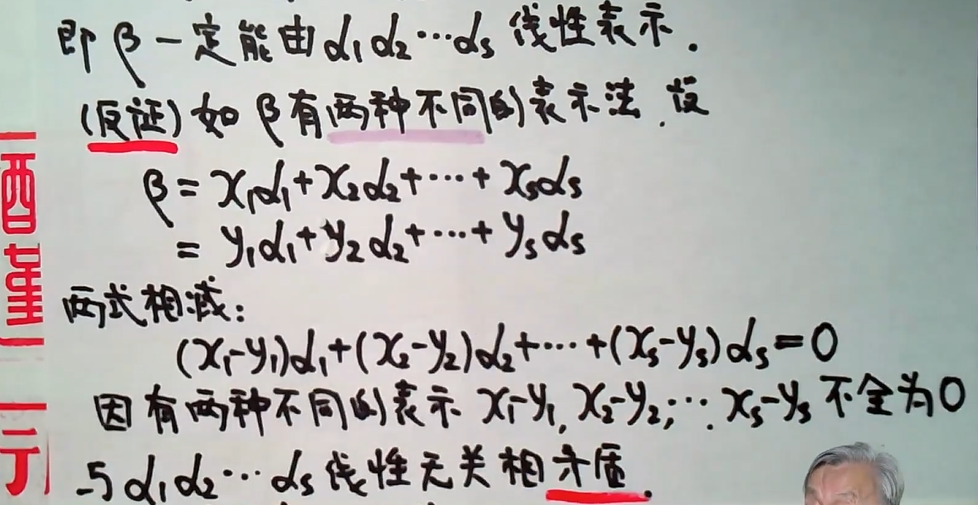 即 β 一定能由 α₁ α₂ ⋯ αₛ 线性表示.
(反证) 如 β 有两种不同的表示法, 设
β = x₁α₁ + x₂α₂ + ⋯ + xₛαₛ
= y₁α₁ + y₂α₂ + ⋯ + yₛαₛ
两式相减:
(x₁-y₁)α₁ + (x₂-y₂)α₂ + ⋯ + (xₛ-yₛ)αₛ = 0
因有两种不同的表示 x₁-y₁, x₂-y₂, ⋯, xₛ-yₛ 不全为0
与 α₁ α₂ ⋯ αₛ 线性无关相矛盾.